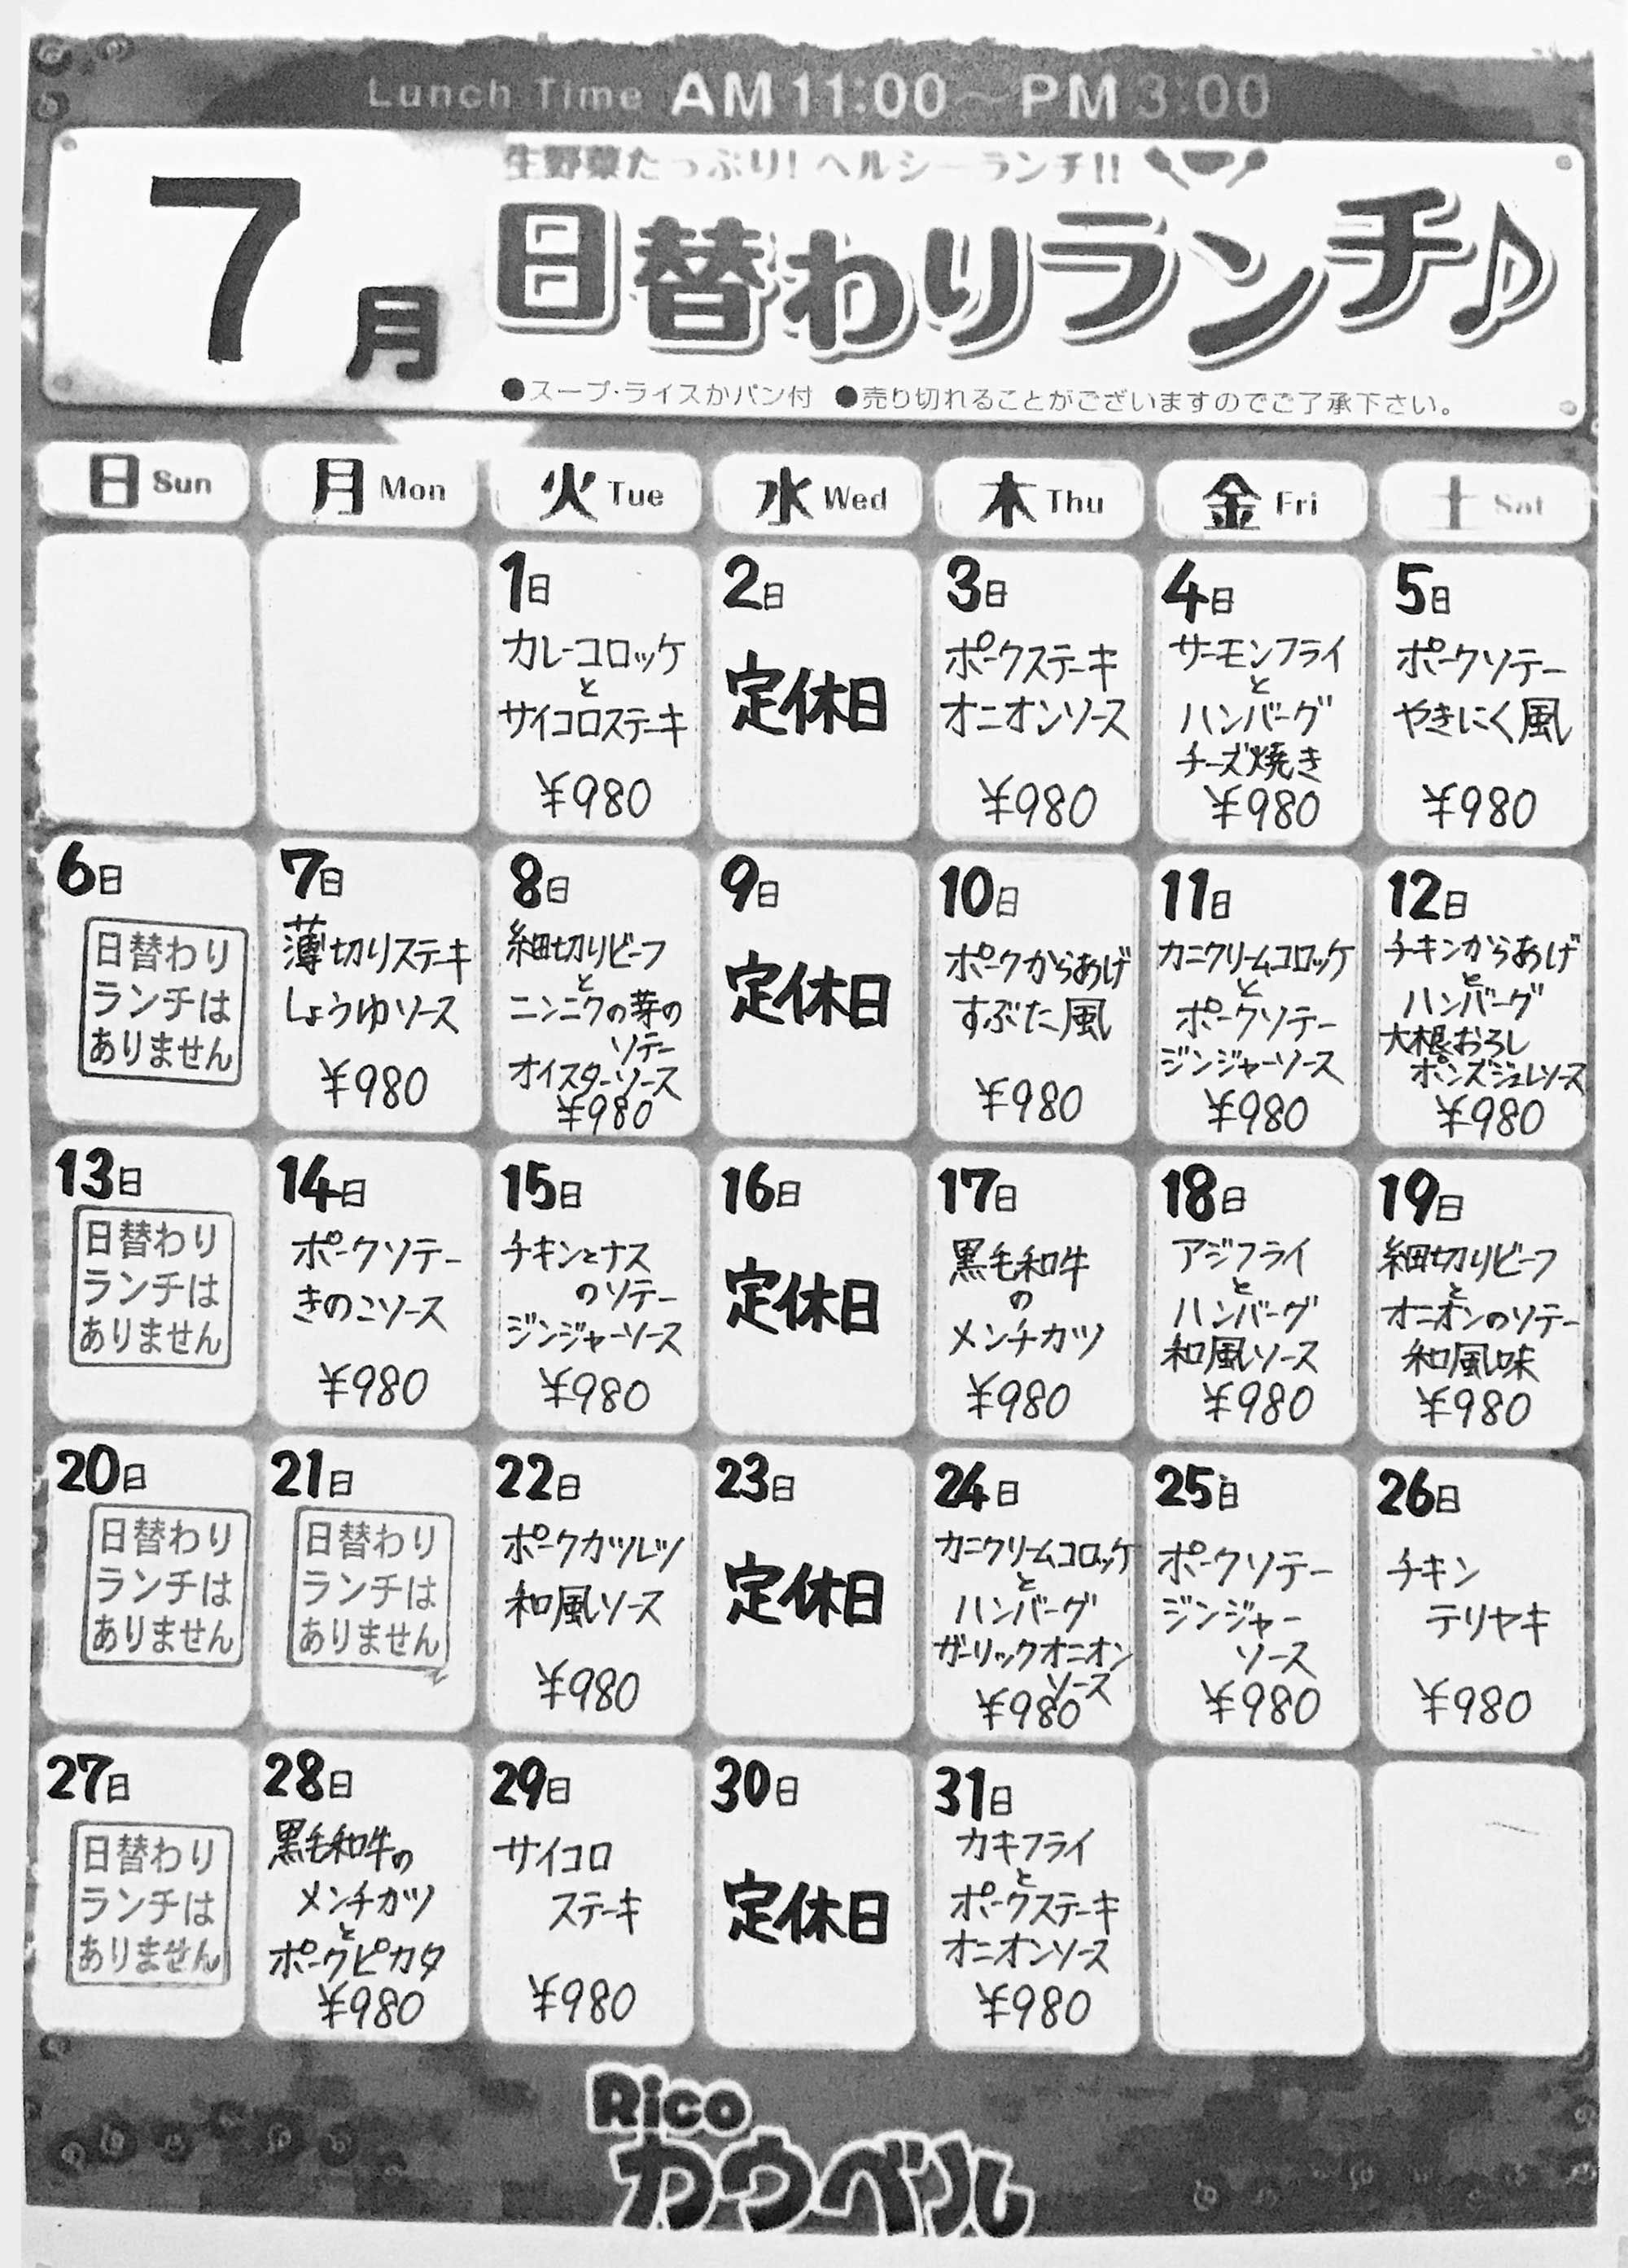 Lunch Time AM11:00～PM3:00
7月
生野菜たっぷり!ヘルシーランチ!!
日替わりランチ♪
●スープ・ライスかパン付 ●売り切れることがございますのでご了承下さい。
日 Sun
月 Mon
火 Tue
水 Wed
木 Thu
金 Fri
土 Sat
1日
カレーコロッケ
と
サイコロステーキ
¥980
2日
定休日
3日
ポークステーキ
オニオンソース
¥980
4日
サーモンフライ
と
ハンバーグ
チーズ焼き
¥980
5日
ポークソテー
やきにく風
¥980
6日
日替わり
ランチは
ありません
7日
薄切りステーキ
しょうゆソース
¥980
8日
細切りビーフ
と
ニンニクの芽の
ソテー
オイスターソース
¥980
9日
定休日
10日
ポークからあげ
すぶた風
¥980
11日
カニクリームコロッケ
と
ポークソテー
ジンジャーソース
¥980
12日
チキンからあげ
と
ハンバーグ
大根おろし
ポンズジュレソース
¥980
13日
日替わり
ランチは
ありません
14日
ポークソテー
きのこソース
¥980
15日
チキンとナス
のソテー
ジンジャーソース
¥980
16日
定休日
17日
黒毛和牛
の
メンチカツ
¥980
18日
アジフライ
と
ハンバーグ
和風ソース
¥980
19日
細切りビーフ
と
オニオンのソテー
和風味
¥980
20日
日替わり
ランチは
ありません
21日
日替わり
ランチは
ありません
22日
ポークカツレツ
和風ソース
¥980
23日
定休日
24日
カニクリームコロッケ
と
ハンバーグ
ガーリックオニオン
ソース
¥980
25日
ポークソテー
ジンジャー
ソース
¥980
26日
チキン
テリヤキ
¥980
27日
日替わり
ランチは
ありません
28日
黒毛和牛の
メンチカツ
と
ポークピカタ
¥980
29日
サイコロ
ステーキ
¥980
30日
定休日
31日
カキフライ
と
ポークステーキ
オニオンソース
¥980
Rico
カウベル